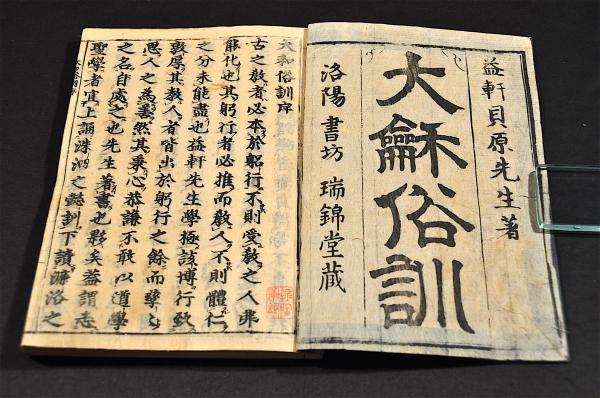 益軒貝原先生著
大龢俗訓
洛陽 書坊 瑞錦堂蔵
大和俗訓序
古之教者必本於躬行不則受教之人弗
能化也其躬行者必推而教人不則體仁
之分未能盡也益軒先生學極該博行致
敦厚其教人者皆出於躬行之餘而孳〻
思人之為善然其秉心恭謙不敢以道學
之名自處之也先生著書也夥矣益謂志
聖學者宜上誦洙泗之懿訓下讀濂洛之